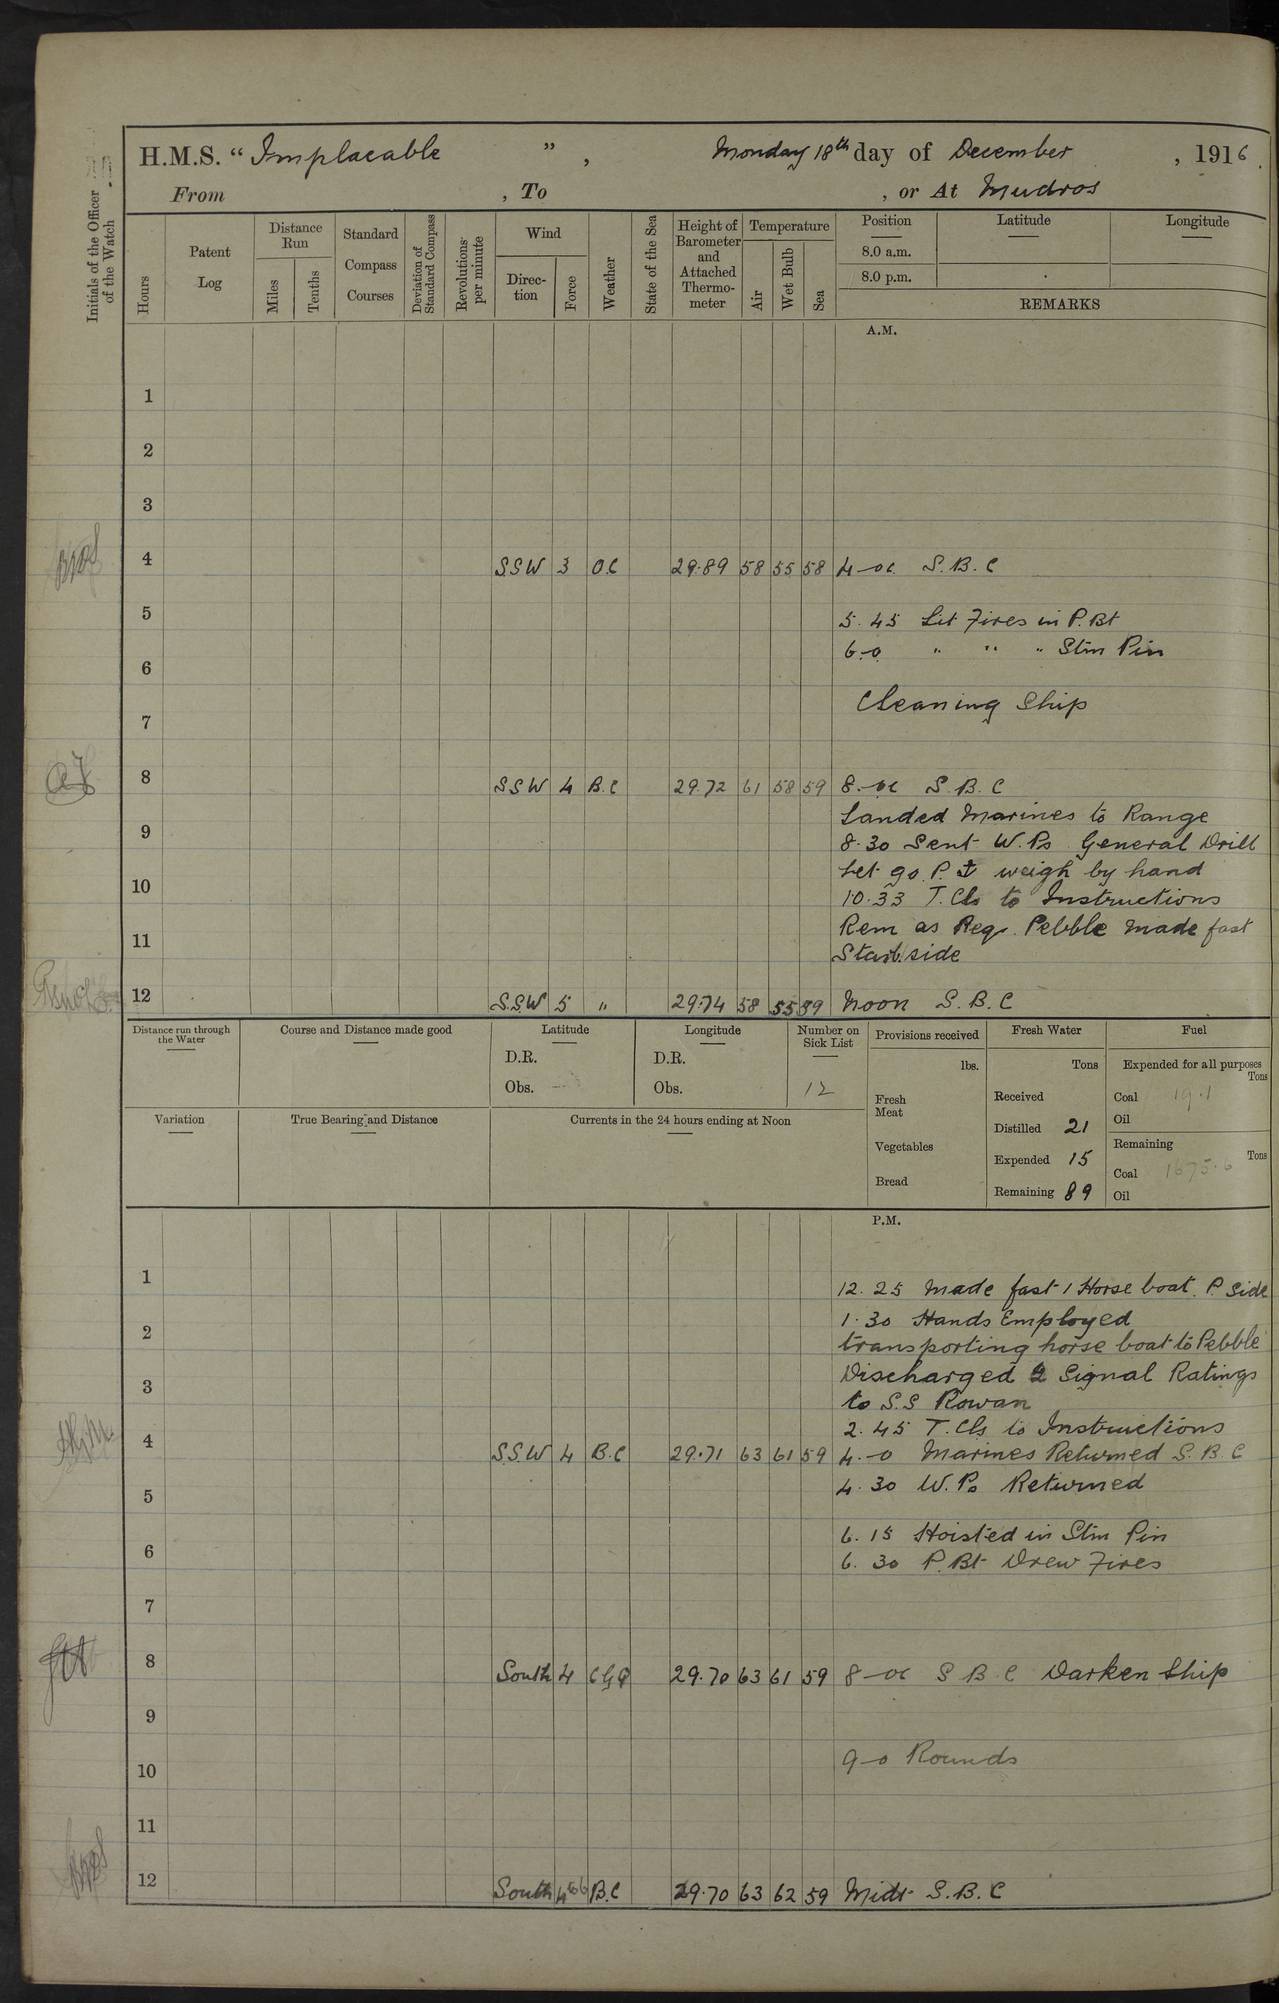 H.M.S. “ Implacable ” , Monday 18th day of December , 1916.
From , To , or At Mudros
Initials of the Officer of the Watch
Hours
Patent Log
Distance Run
Miles
Tenths
Standard Compass Courses
Deviation of Standard Compass
Revolutions per minute
Wind
Direc-tion
Force
Weather
State of the Sea
Height of Barometer and Attached Thermo-meter
Temperature
Air
Wet Bulb
Sea
Position Latitude Longitude
8.0 a.m.
8.0 p.m.
REMARKS
A.M.
1
2
3
4 SSW 3 O.C 29.89 58 55 58 4-oc S.B.C
5 5.45 Lit Fires in P.Bt
6.-0 " " " Stm Pin
6
Cleaning Ship
7
8 SSW 4 B.C 29.72 61 58 59 8.-oc S.B.C
Landed Marines to Range
9 8.30 Sent W.Ps General Drill
Let go P. ⚓ weigh by hand
10 10.33 T.Cls to Instructions
Rem as Req. Pebble Made fast
11 Starb. side
12 S.S.W 5 " 29.74 58 55 59 Noon S.B.C
Distance run through the Water
Course and Distance made good
Latitude
D.R.
Obs.
Longitude
D.R.
Obs.
Number on Sick List
12
Provisions received
lbs.
Fresh Meat
Vegetables
Bread
Fresh Water
Tons
Received
Distilled 21
Expended 15
Remaining 89
Fuel
Expended for all purposes
Tons
Coal 19.1
Oil
Remaining
Tons
Coal 1675.6
Oil
Variation
True Bearing and Distance
Currents in the 24 hours ending at Noon
P.M.
1 12.25 Made fast 1 Horse boat. P. Side
1.30 Hands Employed
2 transporting horse boat to Pebble
Discharged 2 Signal Ratings
3 to S.S Rowan
2.45 T.Cls to Instructions
4 S.S.W 4 B.C 29.71 63 61 59 4.-0 Marines Returned S.B.C
4.30 W.Ps Returned
5
6.15 Hoisted in Stm Pin
6 6.30 P.Bt Drew Fires
7
8 South 4 29.70 63 61 59 8-oc S B C Darken Ship
9
9-0 Rounds
10
11
12 South 4 to 6 B.C 29.70 63 62 59 Midt S.B.C